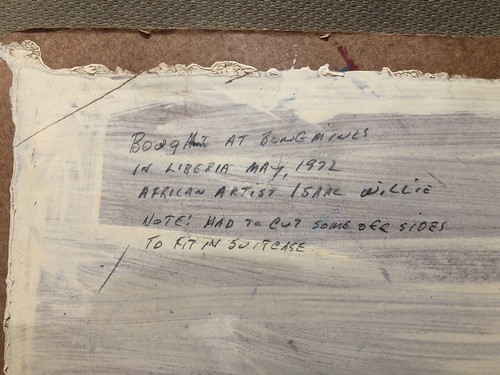 Bought AT BONGMINES
IN LIBERIA MAY, 1972
AFRICAN ARTIST ISAAC WILLIE
NOTE! HAD TO CUT SOME OFF SIDES
TO FIT IN SUITCASE